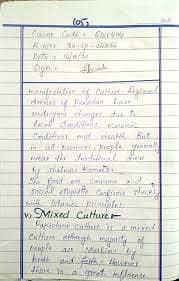 (05)
Course Code: EDU404
Date:
Sign:
manifestation of Culture. Regional
dresses of Pakistan have
undergone changes due to
local traditions, economic
Conditions and wealth. But
in all province, people generally
wear the traditional dress
by shalwar Kameez.
The food we consume and
social etiquette confirms strictly
with Islamic principles.
v. Mixed Culture:
Pakistani culture is a mixed
culture although majority of
people are Muslims by
birth and faith. However
there is a great influence